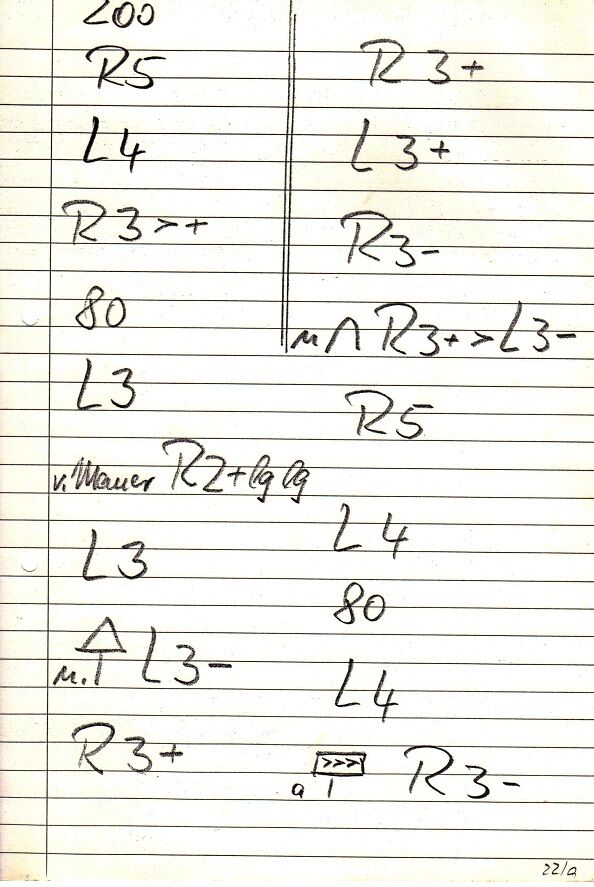 200
R5
L4
R3>+
80
L3
v. Mauer R2+lg lg
L3
n. L3-
R3+
R3+
L3+
R3-
n ∩ R3+>L3-
R5
L4
80
L4
a >>> R3-
22/a